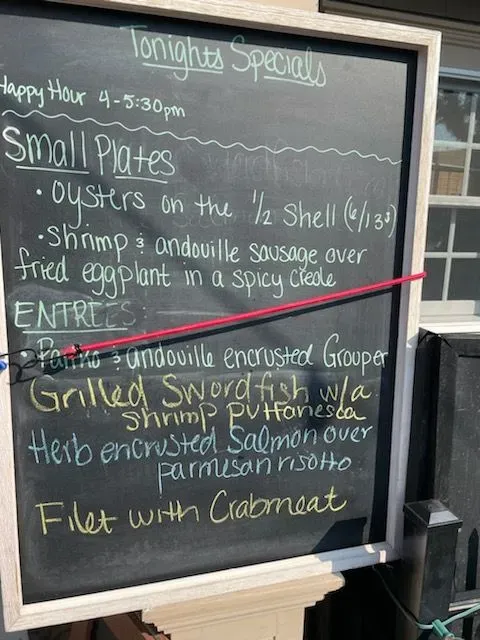 Tonights Specials
Happy Hour 4-5:30pm
Small Plates
• oysters on the 1/2 Shell (6/13⁵)
• shrimp & andouille sausage over
fried eggplant in a spicy creole
ENTREES:
• Panko & andouille encrusted Grouper
Grilled Swordfish w/a
shrimp puttanesca
Herb encrusted Salmon over
parmesan risotto
Filet with Crabmeat